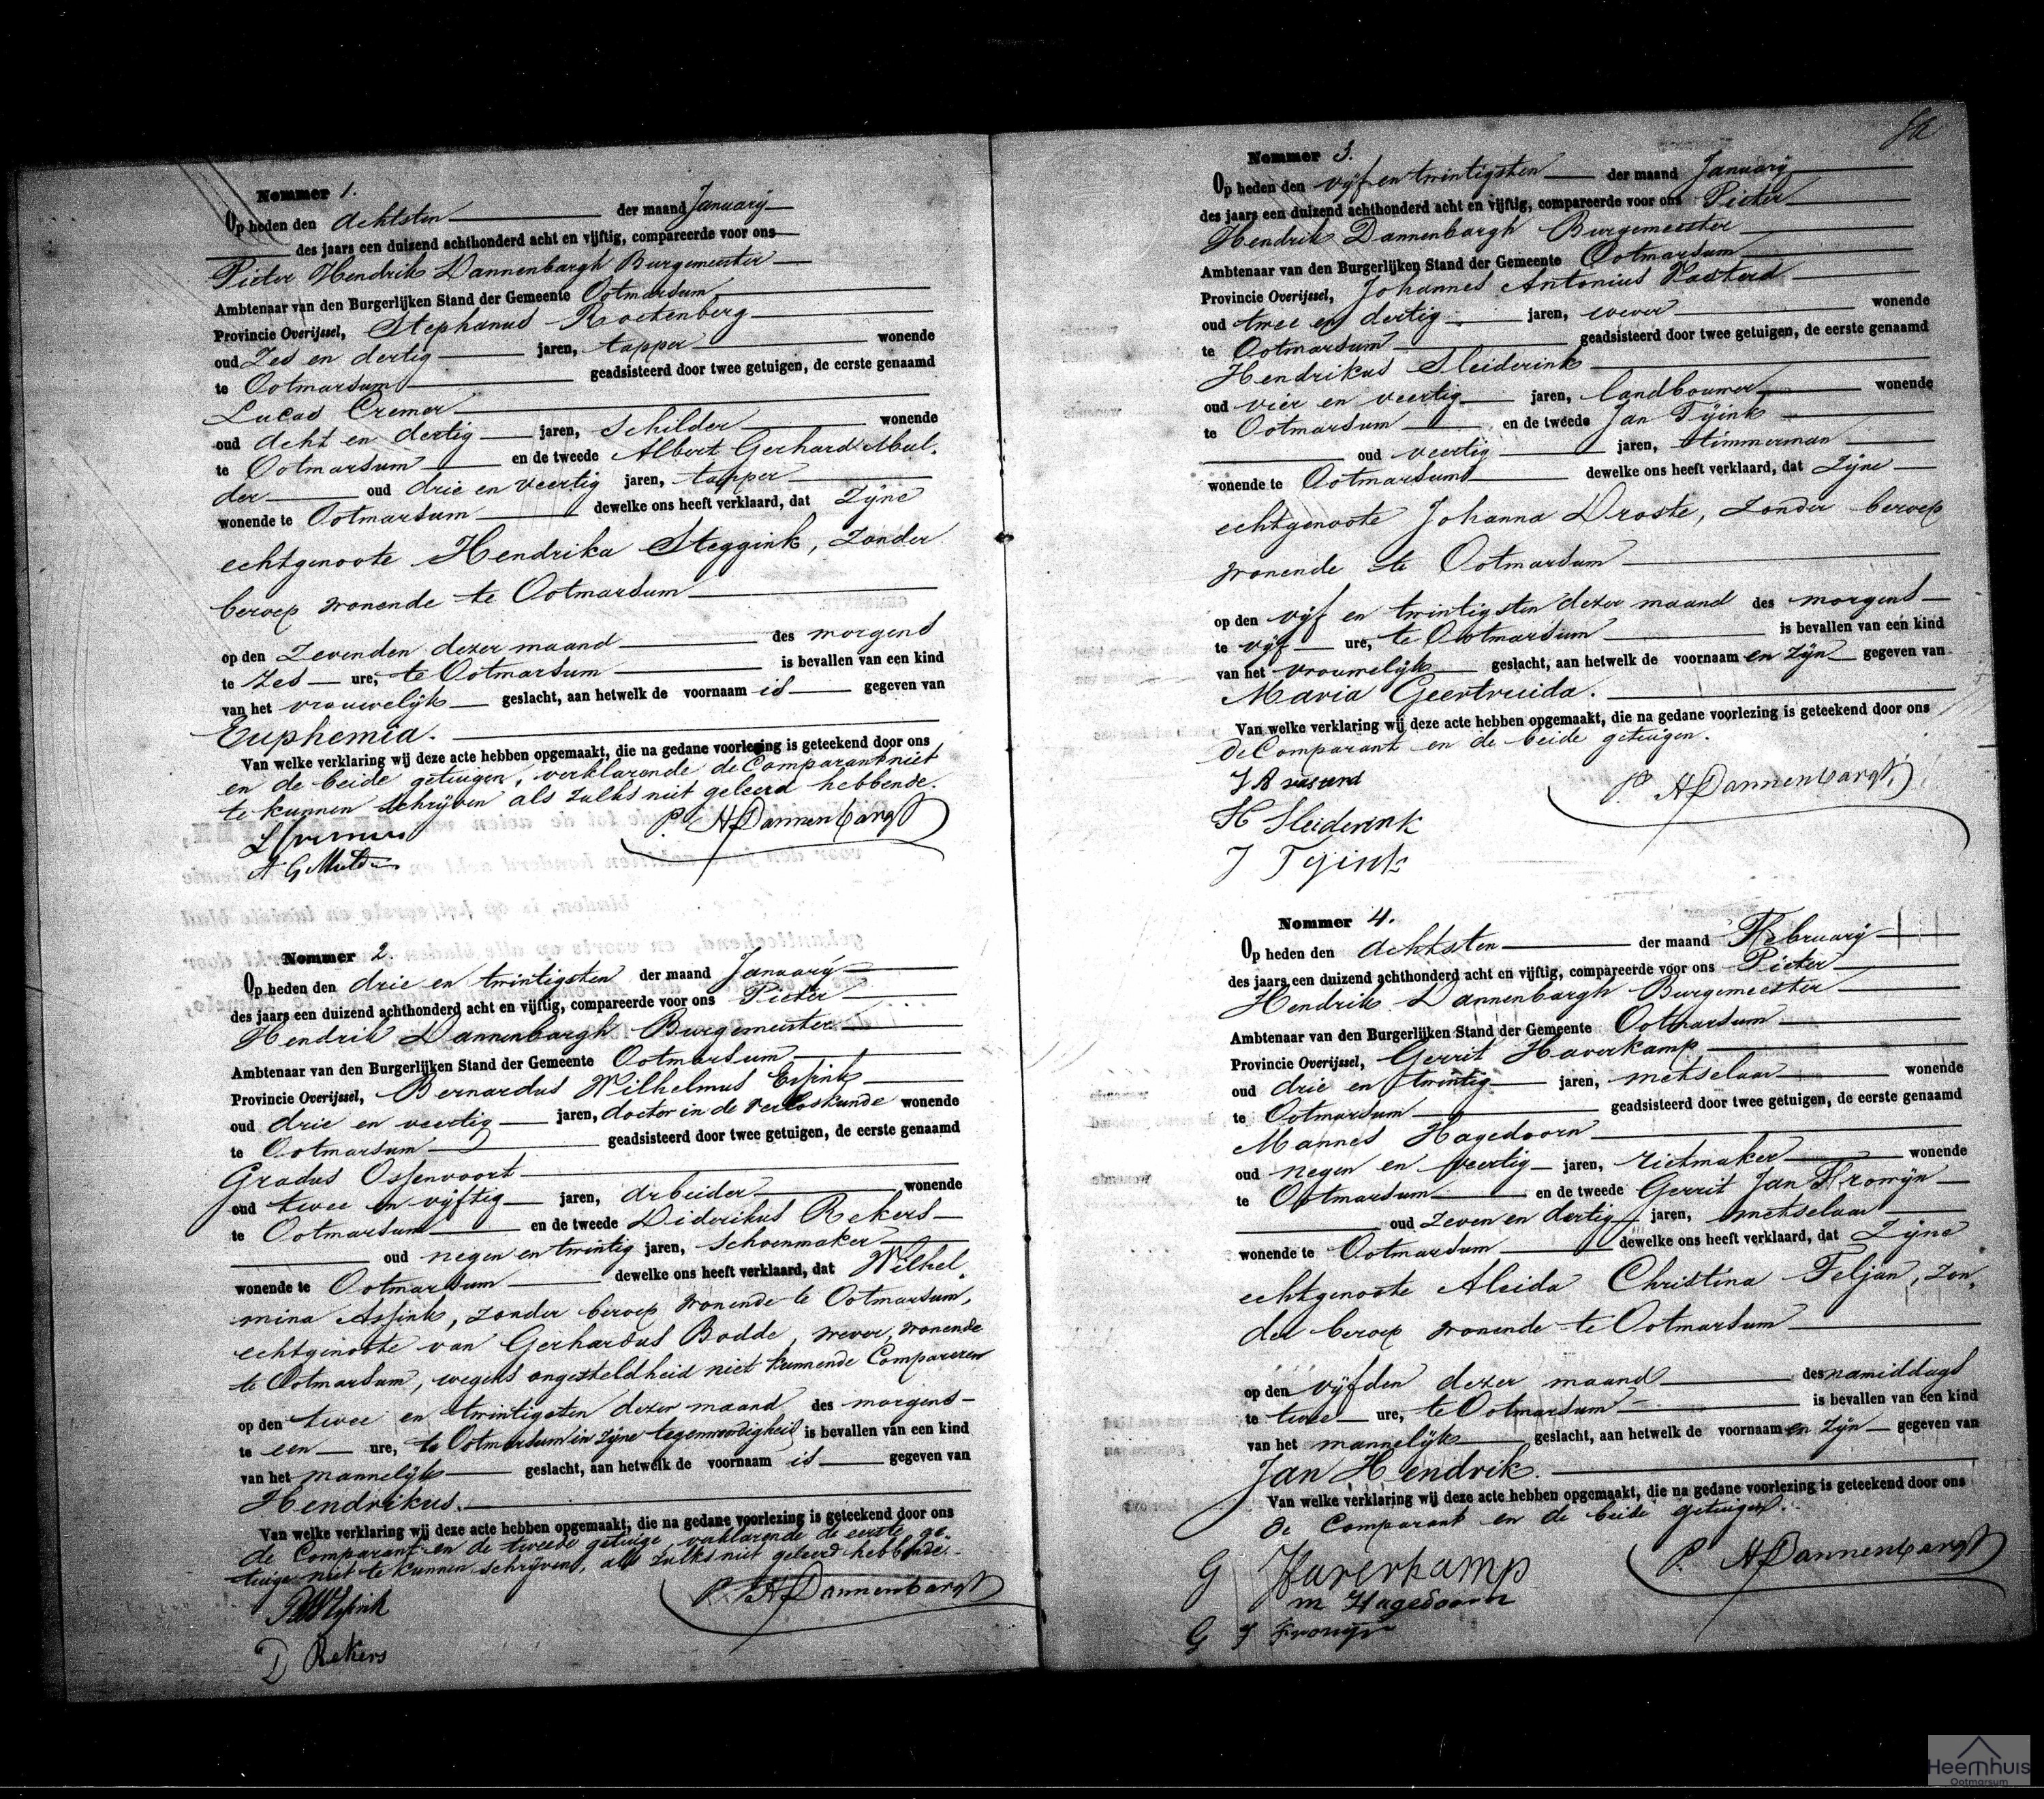 Nommer 1.
Op heden den achtsten der maand January
des jaars een duizend achthonderd acht en vijftig, compareerde voor ons
Pieter Hendrik Dannenbargh Burgemeester
Ambtenaar van den Burgerlijken Stand der Gemeente Ootmarsum
Provincie Overijssel, Stephanus
oud Zes en dertig jaren, tapper wonende
te Ootmarsum geadsisteerd door twee getuigen, de eerste genaamd
Lucas Cremer
oud acht en dertig jaren, Schilder wonende
te Ootmarsum en de tweede Albert Gerhard Mul-
der oud drie en veertig jaren, tapper
wonende te Ootmarsum dewelke ons heeft verklaard, dat Zyne
echtgenoote Hendrika Steggink, Zonder
beroep wonende te Ootmarsum
op den Zevenden dezer maand des morgens
te Zes ure, te Ootmarsum is bevallen van een kind
van het vrouwelyk geslacht, aan hetwelk de voornaam is gegeven van
Euphemia.
Van welke verklaring wij deze acte hebben opgemaakt, die na gedane voorlezing is geteekend door ons
en de beide getuigen, verklarende de Comparant niet
te kunnen schryven als zulks niet geleerd hebbende.
L Cremer
P. H Dannenbargh
A G Mulder
Nommer 2.
Op heden den drie en twintigsten der maand January
des jaars een duizend achthonderd acht en vijftig, compareerde voor ons Pieter
Hendrik Dannenbargh Burgemeester
Ambtenaar van den Burgerlijken Stand der Gemeente Ootmarsum
Provincie Overijssel, Bernardus Wilhelmus
oud drie en veertig jaren, doctor in de verloskunde wonende
te Ootmarsum geadsisteerd door twee getuigen, de eerste genaamd
Gradus Ossenvoort
oud twee en vyftig jaren, arbeider wonende
te Ootmarsum en de tweede Diderikus Rekers
oud negen en twintig jaren, Schoenmaker
wonende te Ootmarsum dewelke ons heeft verklaard, dat Wilhel-
mina Assink, zonder beroep wonende te Ootmarsum,
echtgenoote van Gerhardus Bodde, wever, wonende
te Ootmarsum, wegens ongesteldheid niet kunnende Compareren
op den twee en twintigsten dezer maand des morgens
te een ure, te Ootmarsum in zyne tegenwoordigheid is bevallen van een kind
van het mannelyk geslacht, aan hetwelk de voornaam is gegeven van
Hendrikus.
Van welke verklaring wij deze acte hebben opgemaakt, die na gedane voorlezing is geteekend door ons
de Comparant en de tweede getuige verklarende de eerste ge-
tuige niet te kunnen schryven, als zulks niet geleerd hebbende.
P. H Dannenbargh
D Rekers
Nommer 3.
Op heden den vyf en twintigsten der maand January
des jaars een duizend achthonderd acht en vijftig, compareerde voor ons Pieter
Hendrik Dannenbargh Burgemeester
Ambtenaar van den Burgerlijken Stand der Gemeente Ootmarsum
Provincie Overijssel, Johannes Antonius Vasterd
oud twee en dertig jaren, wever wonende
te Ootmarsum geadsisteerd door twee getuigen, de eerste genaamd
Hendrikus Sleiderink
oud vier en veertig jaren, landbouwer wonende
te Ootmarsum en de tweede Jan Tyink
oud veertig jaren, timmerman
wonende te Ootmarsum dewelke ons heeft verklaard, dat Zyne
echtgenoote Johanna Droste, Zonder beroep
wonende te Ootmarsum
op den vyf en twintigsten dezer maand des morgens
te vyf ure, te Ootmarsum is bevallen van een kind
van het vrouwelyk geslacht, aan hetwelk de voornaam en zyn gegeven van
Maria Geertruida.
Van welke verklaring wij deze acte hebben opgemaakt, die na gedane voorlezing is geteekend door ons
de Comparant en de beide getuigen.
P. H Dannenbargh
H Sleiderink
J Tyink
Nommer 4.
Op heden den achtsten der maand February
des jaars een duizend achthonderd acht en vijftig, compareerde voor ons Pieter
Hendrik Dannenbargh Burgemeester
Ambtenaar van den Burgerlijken Stand der Gemeente Ootmarsum
Provincie Overijssel, Gerrit Haverkamp
oud drie en twintig jaren, metselaar wonende
te Ootmarsum geadsisteerd door twee getuigen, de eerste genaamd
Mannes Hagedoorn
oud negen en veertig jaren, rietmaker wonende
te Ootmarsum en de tweede Gerrit Jan Fromyn
oud zeven en dertig jaren, metselaar
wonende te Ootmarsum dewelke ons heeft verklaard, dat Zyne
echtgenoote Aleida Christina Feljan, zon-
der beroep wonende te Ootmarsum
op den vyfden dezer maand des namiddags
te twee ure, te Ootmarsum is bevallen van een kind
van het mannelyk geslacht, aan hetwelk de voornaam en zyn gegeven van
Jan Hendrik.
Van welke verklaring wij deze acte hebben opgemaakt, die na gedane voorlezing is geteekend door ons
de Comparant en de beide getuigen.
G Haverkamp
P. H Dannenbargh
m Hagedoorn
G J Fromyn
Heemhuis
Ootmarsum